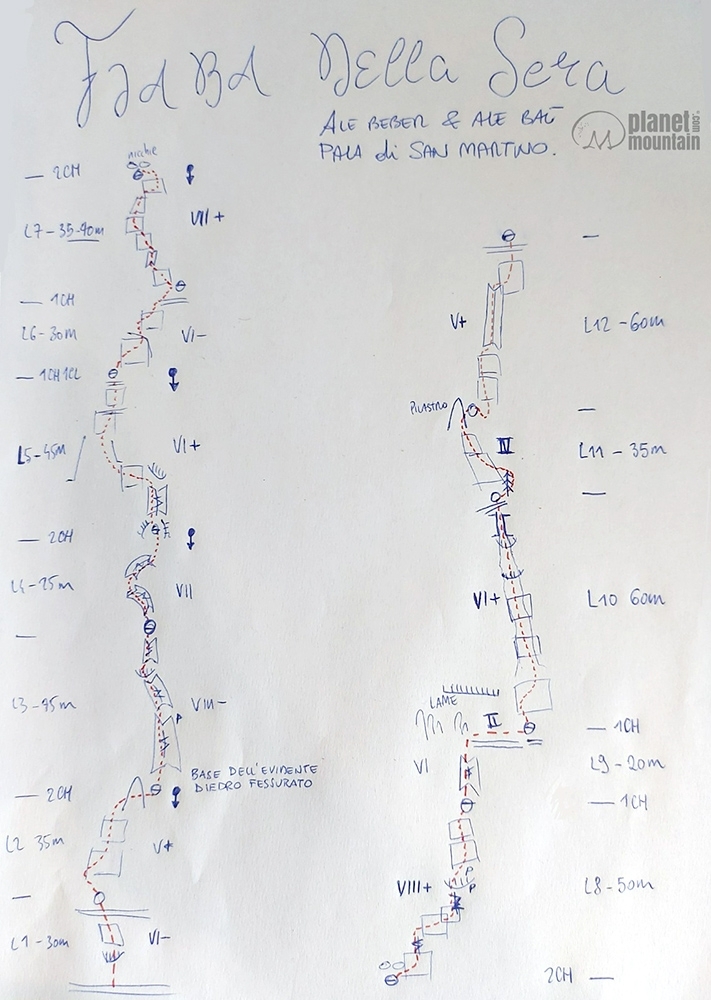 FIABA DELLA SERA
ALE BEBER & ALE BAÙ
PALA di SAN MARTINO.
planet
mountain
.com
nicchie
— 2CH
VII+
L7-35-40m
— 1CH
L6-30m
VI-
— 1CH1CL
VI+
L5-45m
— 2CH
L4-25m
VII
—
L3-45m
VIII-
P
BASE DELL'EVIDENTE
DIEDRO FESSURATO
— 2CH
L2 35m
V+
—
L1-30m
VI-
—
V+
L12-60m
PILASTRO
—
IV
L11-35m
—
VI+
L10 60m
LAME
II
— 1CH
VI
L9-20m
— 1CH
P
VIII+
P
L8-50m
2CH —